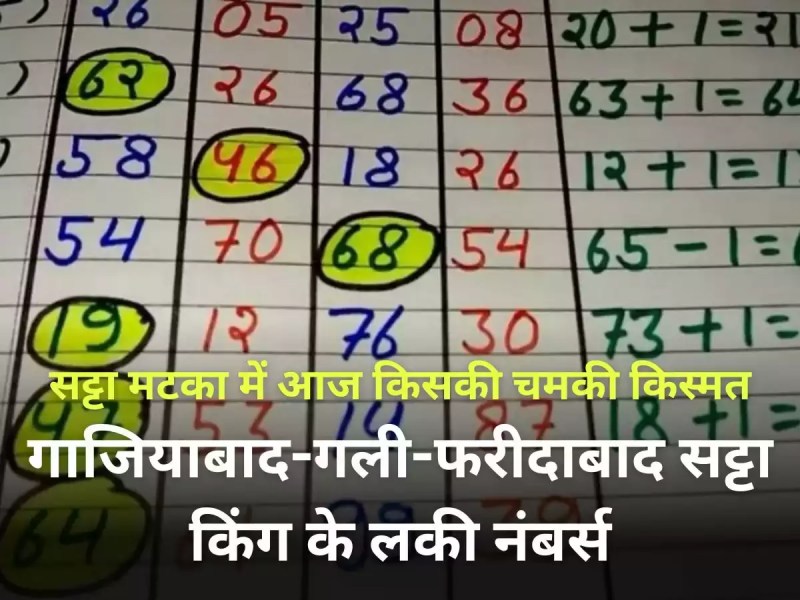 26 05 25 08 20+1=21
62 26 68 36 63+1=64
58 46 18 26 12+1=
54 70 68 54 65-1=
19 12 76 30 73+1=
सट्टा मटका में आज किसकी चमकी किस्मत
53 14 87 18+1=
गाजियाबाद-गली-फरीदाबाद सट्टा
64
किंग के लकी नंबर्स